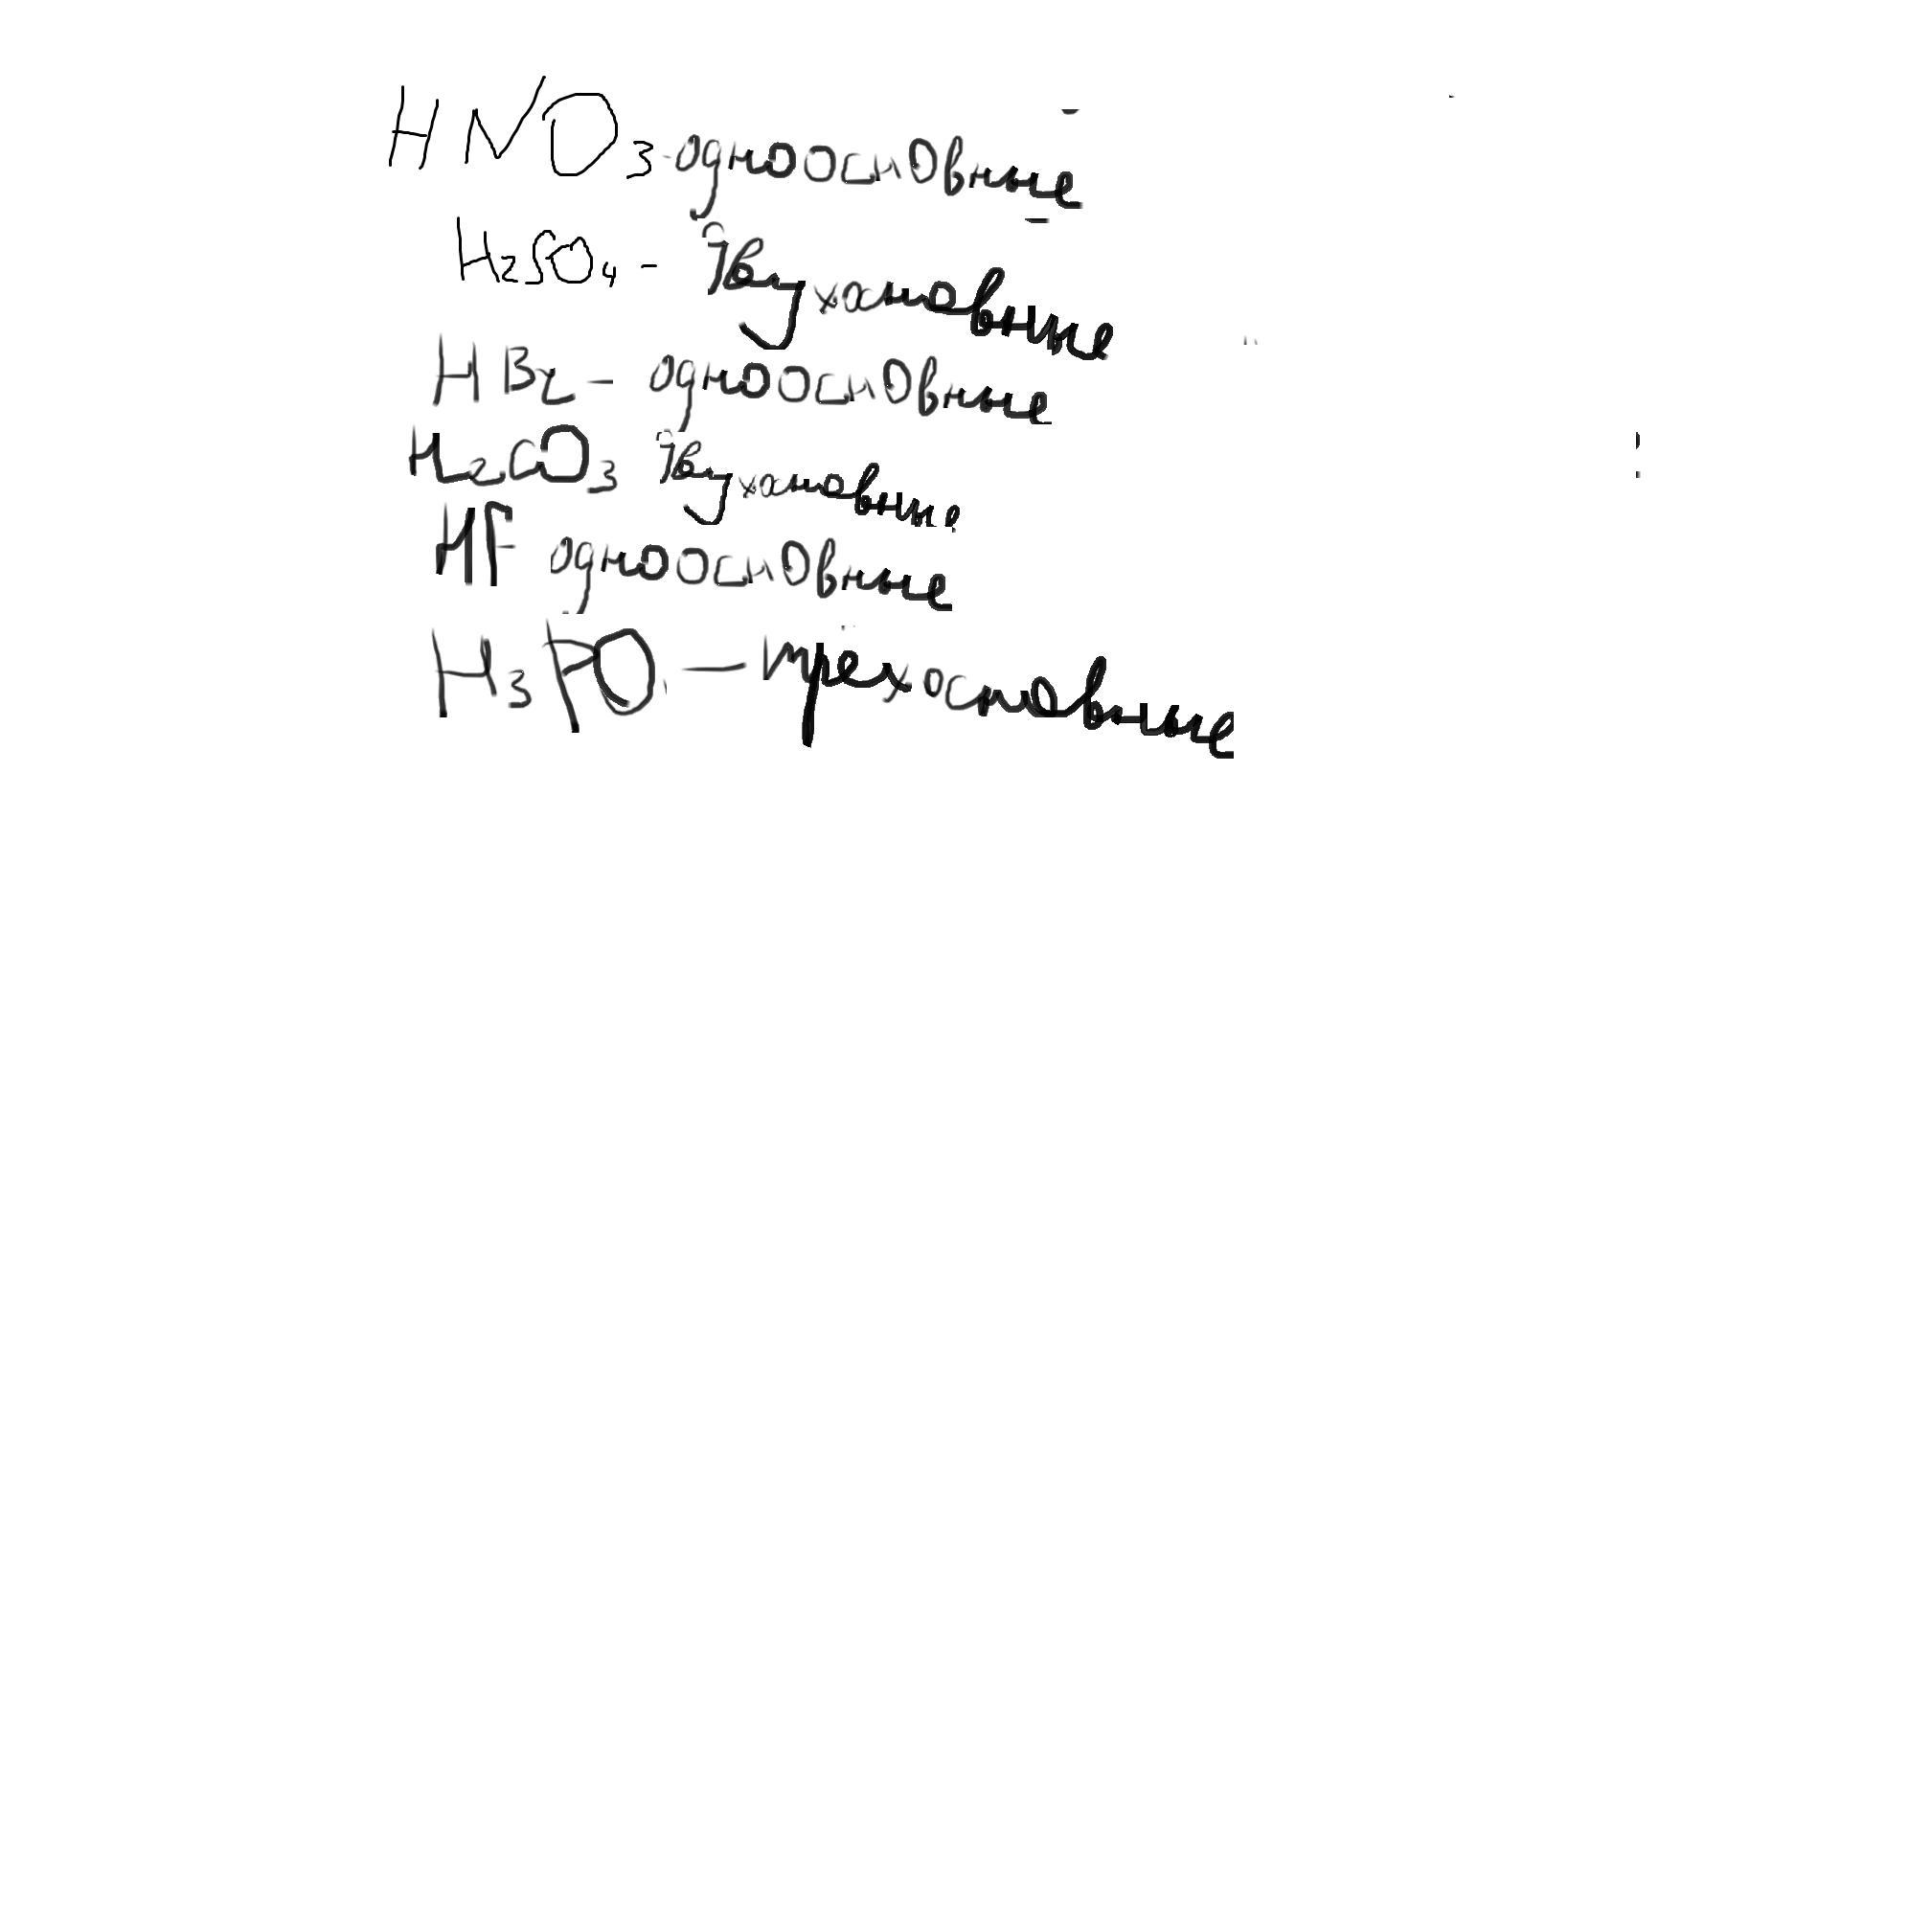 HNO3-одноосновные
H2SO4 - двухосновные
HBr - одноосновные
H2CO3 двухосновные
HF одноосновные
H3PO - трёхосновные